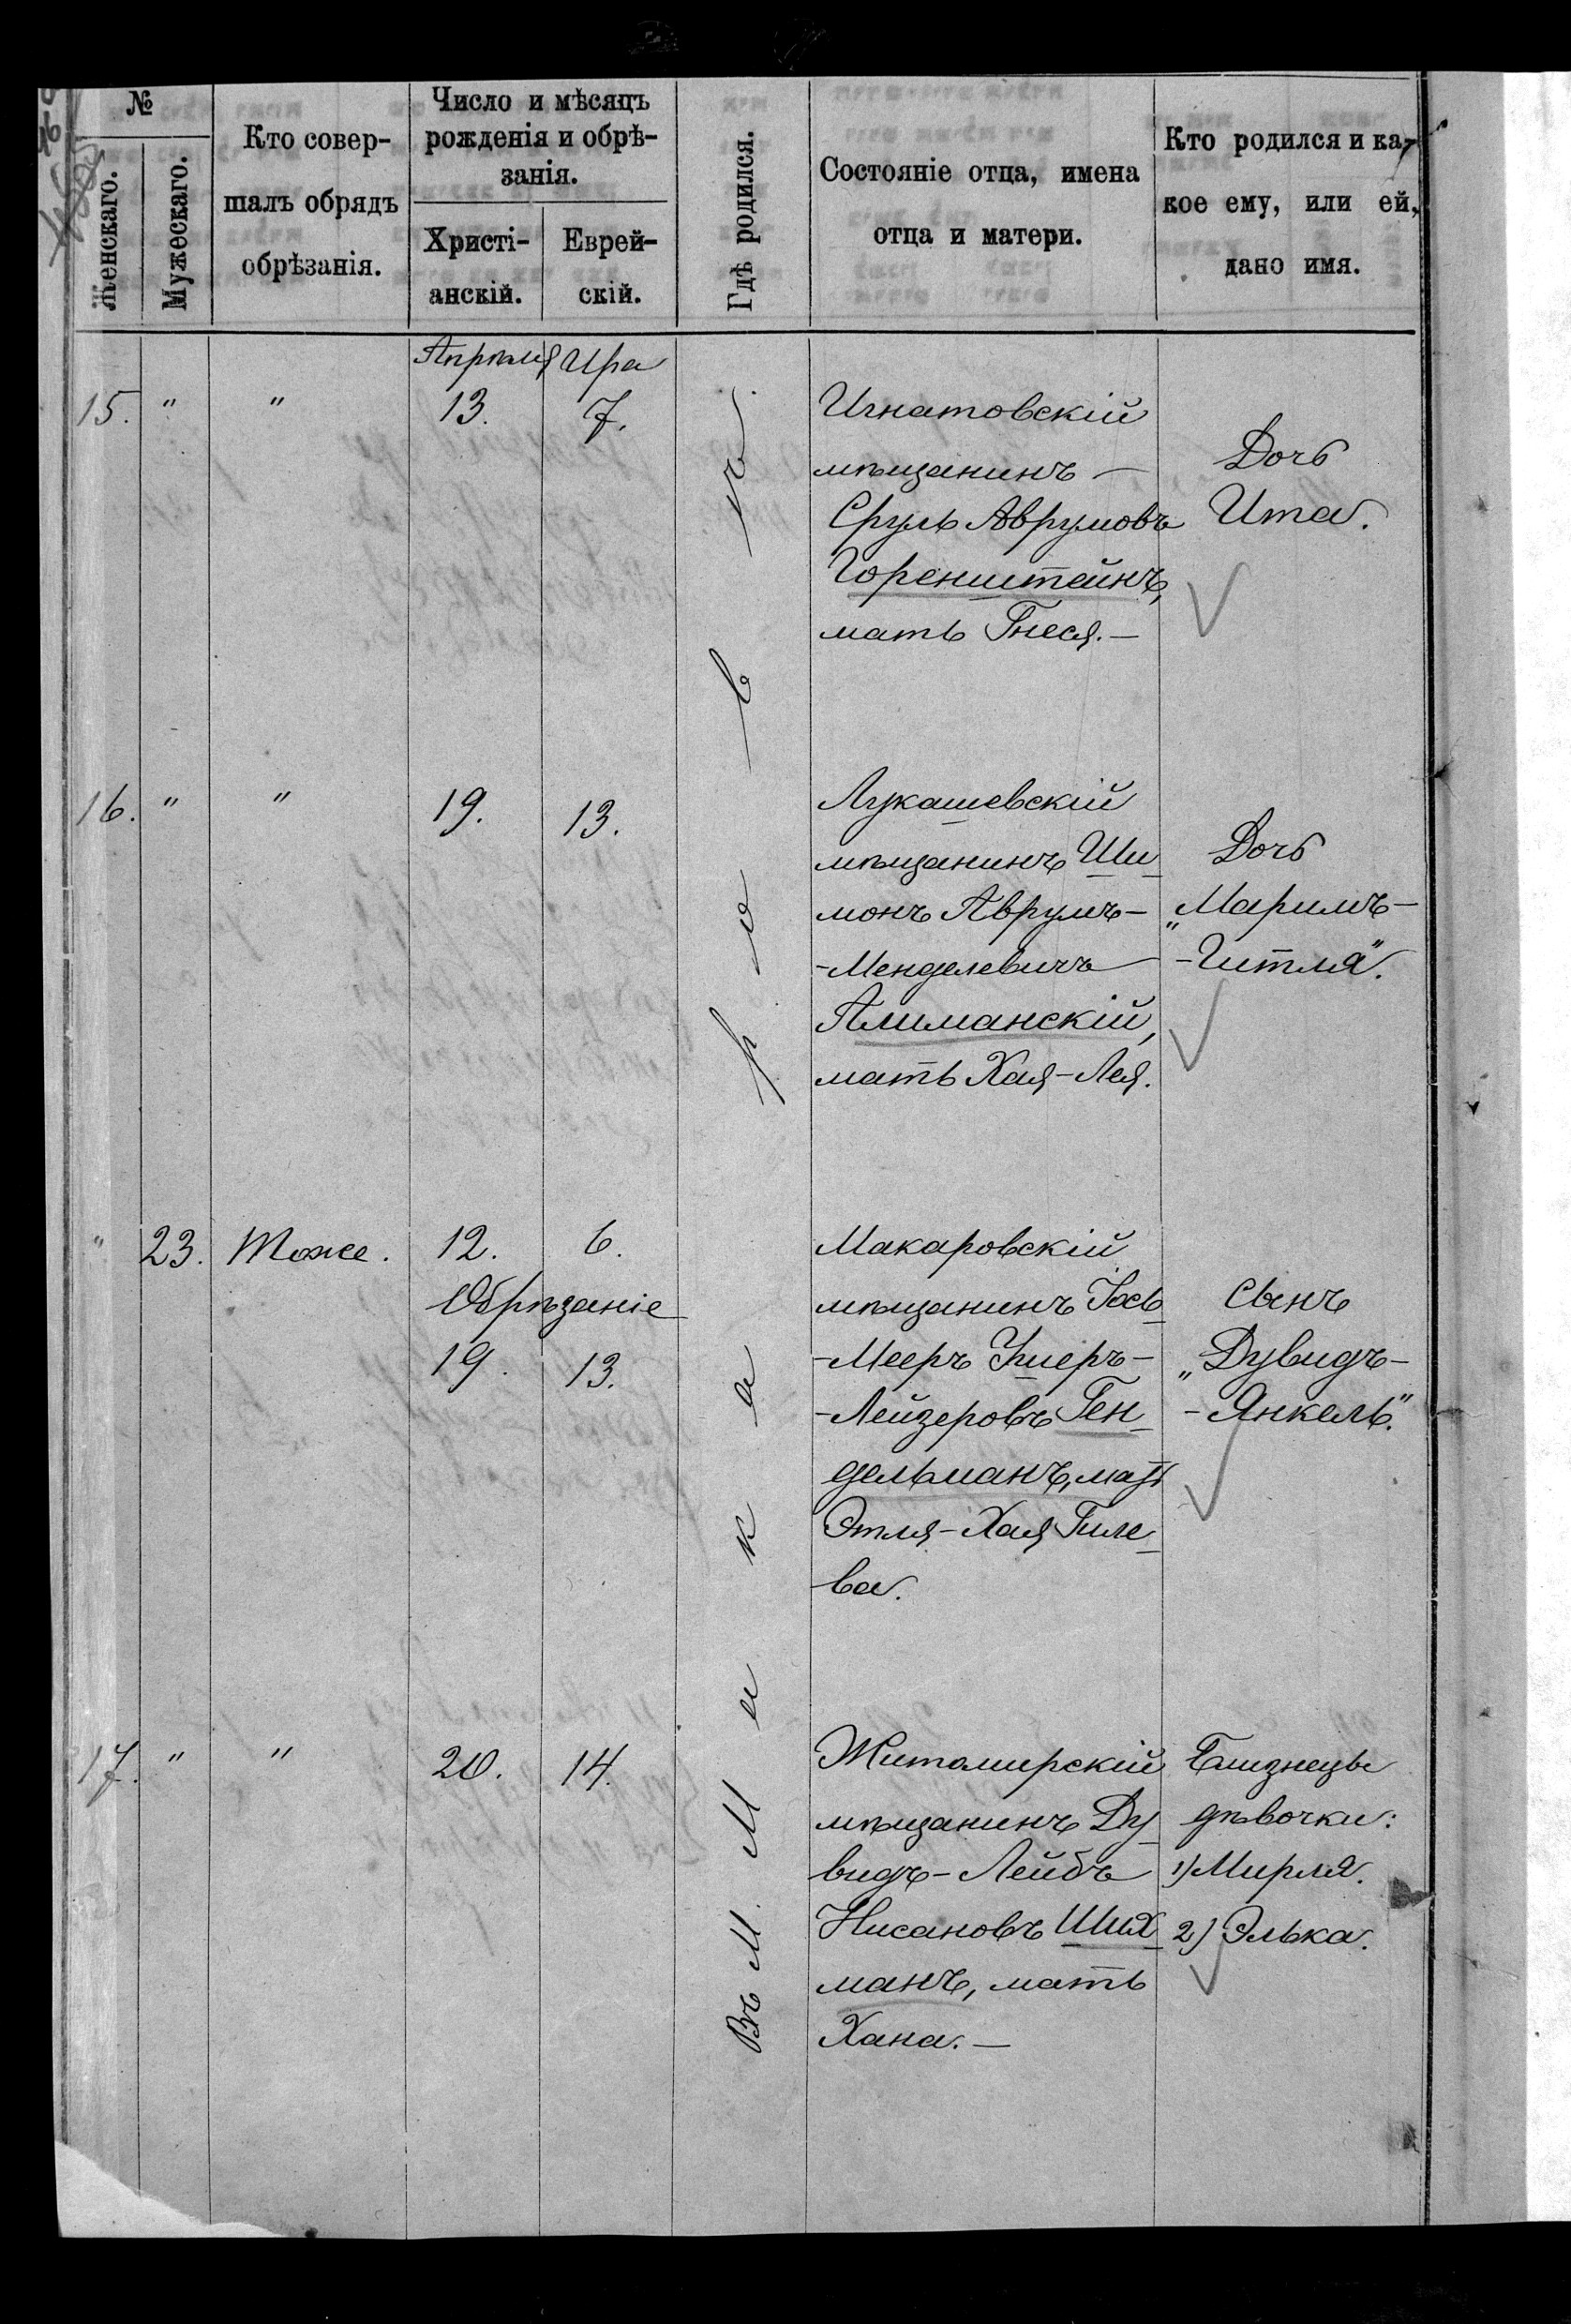 №
Женскаго.
Мужескаго.
Кто совер-
шалъ обрядъ
обрѣзанія.
Число и мѣсяцъ
рожденія и обрѣ-
занія.
Христі-
анскій.
Еврей-
скій.
Гдѣ родился.
Состояніе отца, имена
отца и матери.
Кто родился и ка-
кое ему, или ей,
дано имя.
Въ М. Макаровѣ.
Апрѣля Ира
15. " " 13. 7.
Игнатовскій
мѣщанинъ —
Сруль Аврумовъ
Горенштейнъ,
мать Гнеся. —
Дочь
Ита.
16. " " 19. 13.
Лукашевскій
мѣщанинъ Ши
монъ Аврумъ-
-Менделевичъ
Алиманскій,
мать Хая-Лея.
Дочь
„Маримъ-
-Гитля".
" 23. Тоже. 12. 6.
Обрѣзаніе
19. 13.
Макаровскій
мѣщанинъ Іось
-Мееръ
-Лейзеровъ Ген
дельманъ, мать
Этля-Хая
ва.
Сынъ
„Дувидъ-
-Янкель".
17. " " 20. 14.
Житомирскій
мѣщанинъ Ду
видъ-Лейбъ
Нисановъ Ших
манъ, мать
Хана. —
Близнецы
дѣвочки:
1) Мирля.
2) Элька.